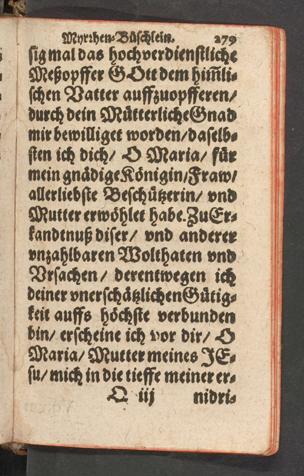 Myrꝛhen-Büschlein. 279
sig mal das hochverdienstliche
Meßopffer GOtt dem him̃li-
schen Vatter auffzuopfferen/
durch dein MütterlicheGnad
mir bewilliget worden/daselb-
sten ich dich/ O Maria/ für
mein gnädigeKönigin/Fraw/
allerliebste Beschützerin/ vnd
Mutter erwöhlet habe.ZuEr-
kandtnuß diser/ vnd anderer
vnzahlbaren Wolthaten vnd
Vrsachen/ derentwegen ich
deiner vnerschätzlichenGütig-
keit auffs höchste verbunden
bin/ erscheine ich vor dir/ O
Maria/ Mutter meines JE-
su/ mich in die tieffe meiner er-
Q iij nidri-